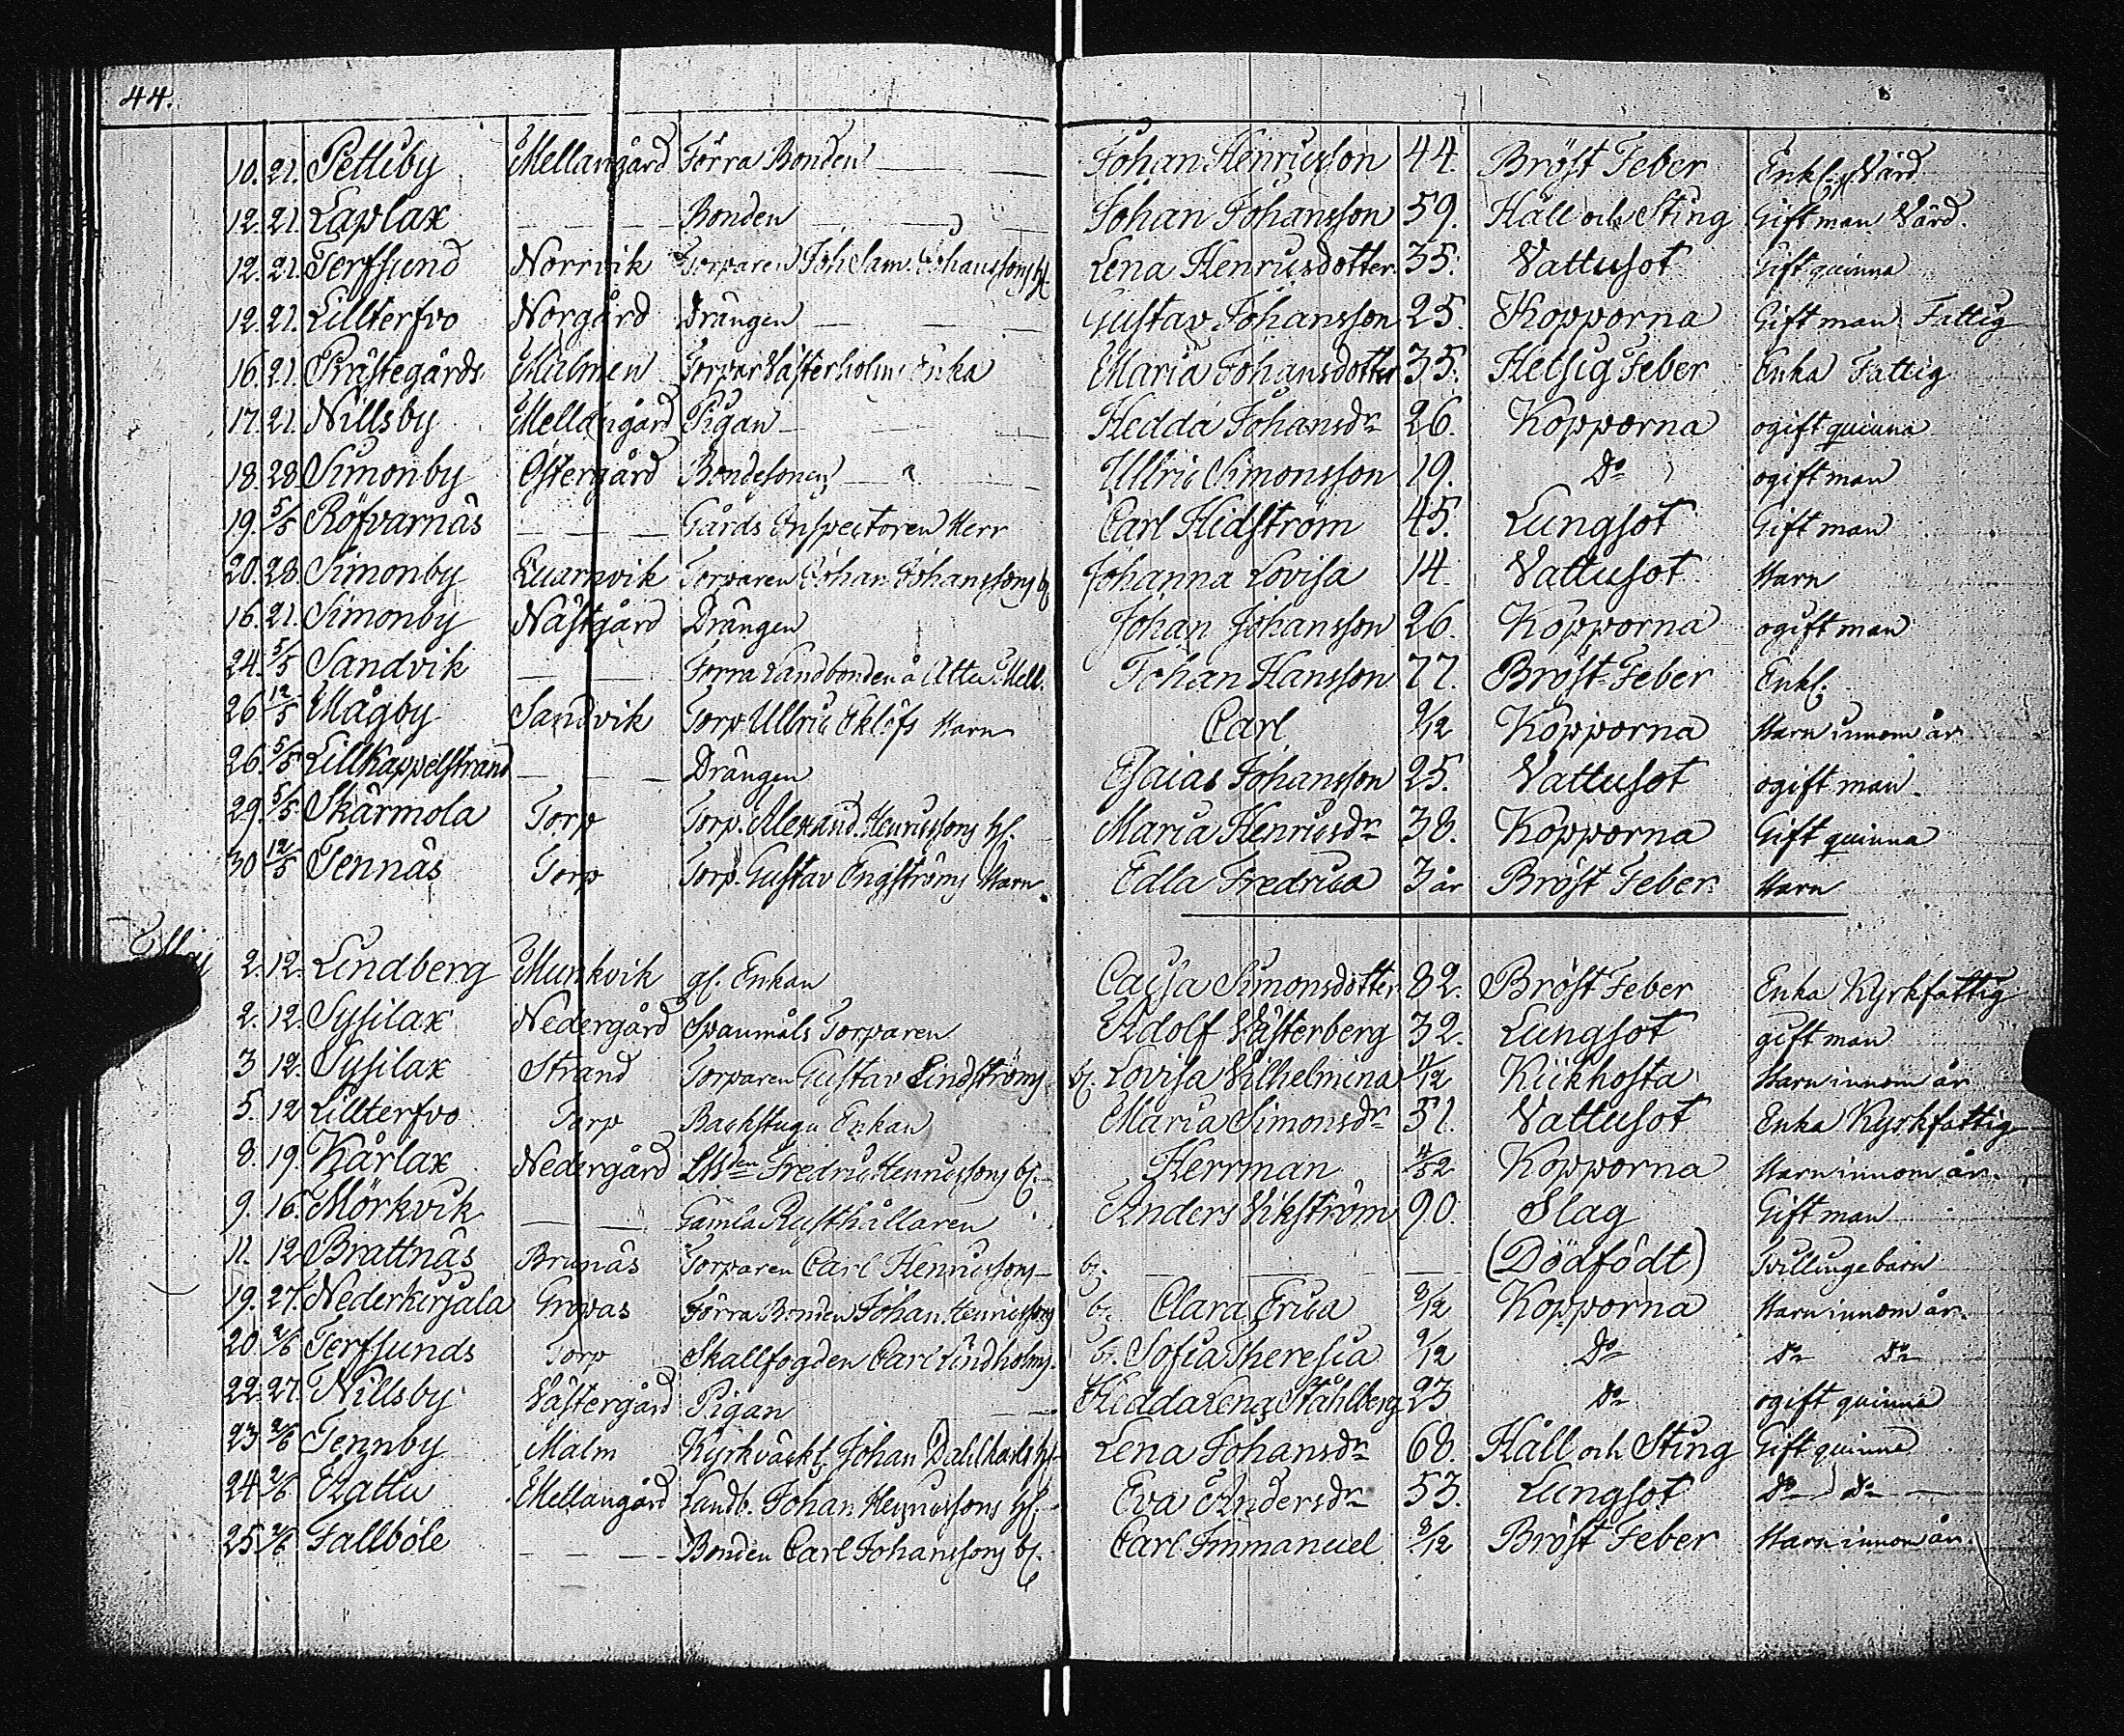 44.
10. 21. Petlby Mellangård Förra Bonden Johan Henricsson 44. Bröst Feber Enkl. Vård
12. 21. Laplax Bonden Johan Johansson 59. Håll och Sting Gift man Vård.
12. 21. Terfsund Norrvik Torparen Joh Sam. Johanssons h. Lena Henricsdotter 35. Vattusot Gift quinna
12. 21. Lillterfvo Norgård Drängen Gustav Johansson 25. Kopporna Gift man Fattig
16. 21. Prästegårds Malmen Torpar Västerholms Enka Maria Johansdotter 35. Hetsig Feber Enka Fattig
17. 21. Nillsby Mellangård Pigan Hedda Johansdr 26. Kopporna ogift quinna
18. 28 Simonby Östergård Bondesonen Ullric Simonsson 19. Do ogift man
19. 5/5 Röfvarnäs Gårds Inspectoren Herr Carl Hidström 45. Lungsot Gift man
20. 28. Simonby Quarnvik Torparen Johan Johanssons b Johanna Lovisa 14. Vattusot Barn
16. 21. Simonby Nästgård Drängen Johan Johansson 26. Kopporna ogift man
24. 5/5 Sandvik Förra Landbonden å Attu Mell. Johan Hansson 77. Bröst Feber Enkl.
26 12/5 Mågby Sandvik Torp Ullric Eklöfs Barn Carl 9/12 Kopporna Barn innom år
26. 5/5 Lillkappelstrand Drängen Esaias Johansson 25. Vattusot ogift man
29. 5/5 Skärmola Torp Torp. Alexand. Henricssons h. Maria Henricsdr 38. Kopporna Gift quinna
30 12/5 Tennäs Torp Torp. Gustav Engströms Barn Edla Fredrica 3 år Bröst Feber Barn
Maj 2. 12. Lindberg Munkvik gl. Enkan Caisa Simonsdotter 82. Bröst Feber Enka Kyrkfattig
2. 12. Sysilax Nedergård Spanmåls Torparen Adolf Västerberg 32. Lungsot gift man
3 12. Sysilax Strand Torparen Gustav Lindströms b. Lovisa Vilhelmina 11/12 Kikhosta Barn innom år
5. 12 Lillterfvo Torp Backstugu Enkan Maria Simonsdr 51. Vattusot Enka Kyrkfattig
8. 19. Kårlax Nedergård Fredric Henricssons b. Herrman 4/52 Kopporna Barn innom år.
9. 16. Mörkvik Gamla Rusthållaren Anders Vikström 90. Slag Gift man
11. 12 Brattnäs Brunäs Torparen Carl Henricssons b. (Dödfödt) Tvillinge barn
19. 27. Nederkirjala Gropas Förra Bonden Johan Henricssons b. Clara Erica 8/12 Kopporna Barn innom år.
20. 2/6 Terfsunds Torp Skallfogden Carl Lindholms b. Sofia Theresia 9/12 Do Do Do
22. 27. Nillsby Västergård Pigan Hedda Lena Ståhlberg 23 Do ogift quinna
23 2/6 Tennby Malm Kyrkväckt. Johan Dahlkarls h. Lena Johansdr 68. Håll och Sting Gift quinna
24 2/6 Attu Mellangård Landb. Johan Henricssons h. Eva Andersdr 53. Lungsot Do Do
25. 2/6 Fallböle Bonden Carl Johanssons b. Carl Immanuel 8/12 Bröst Feber Barn innom år.